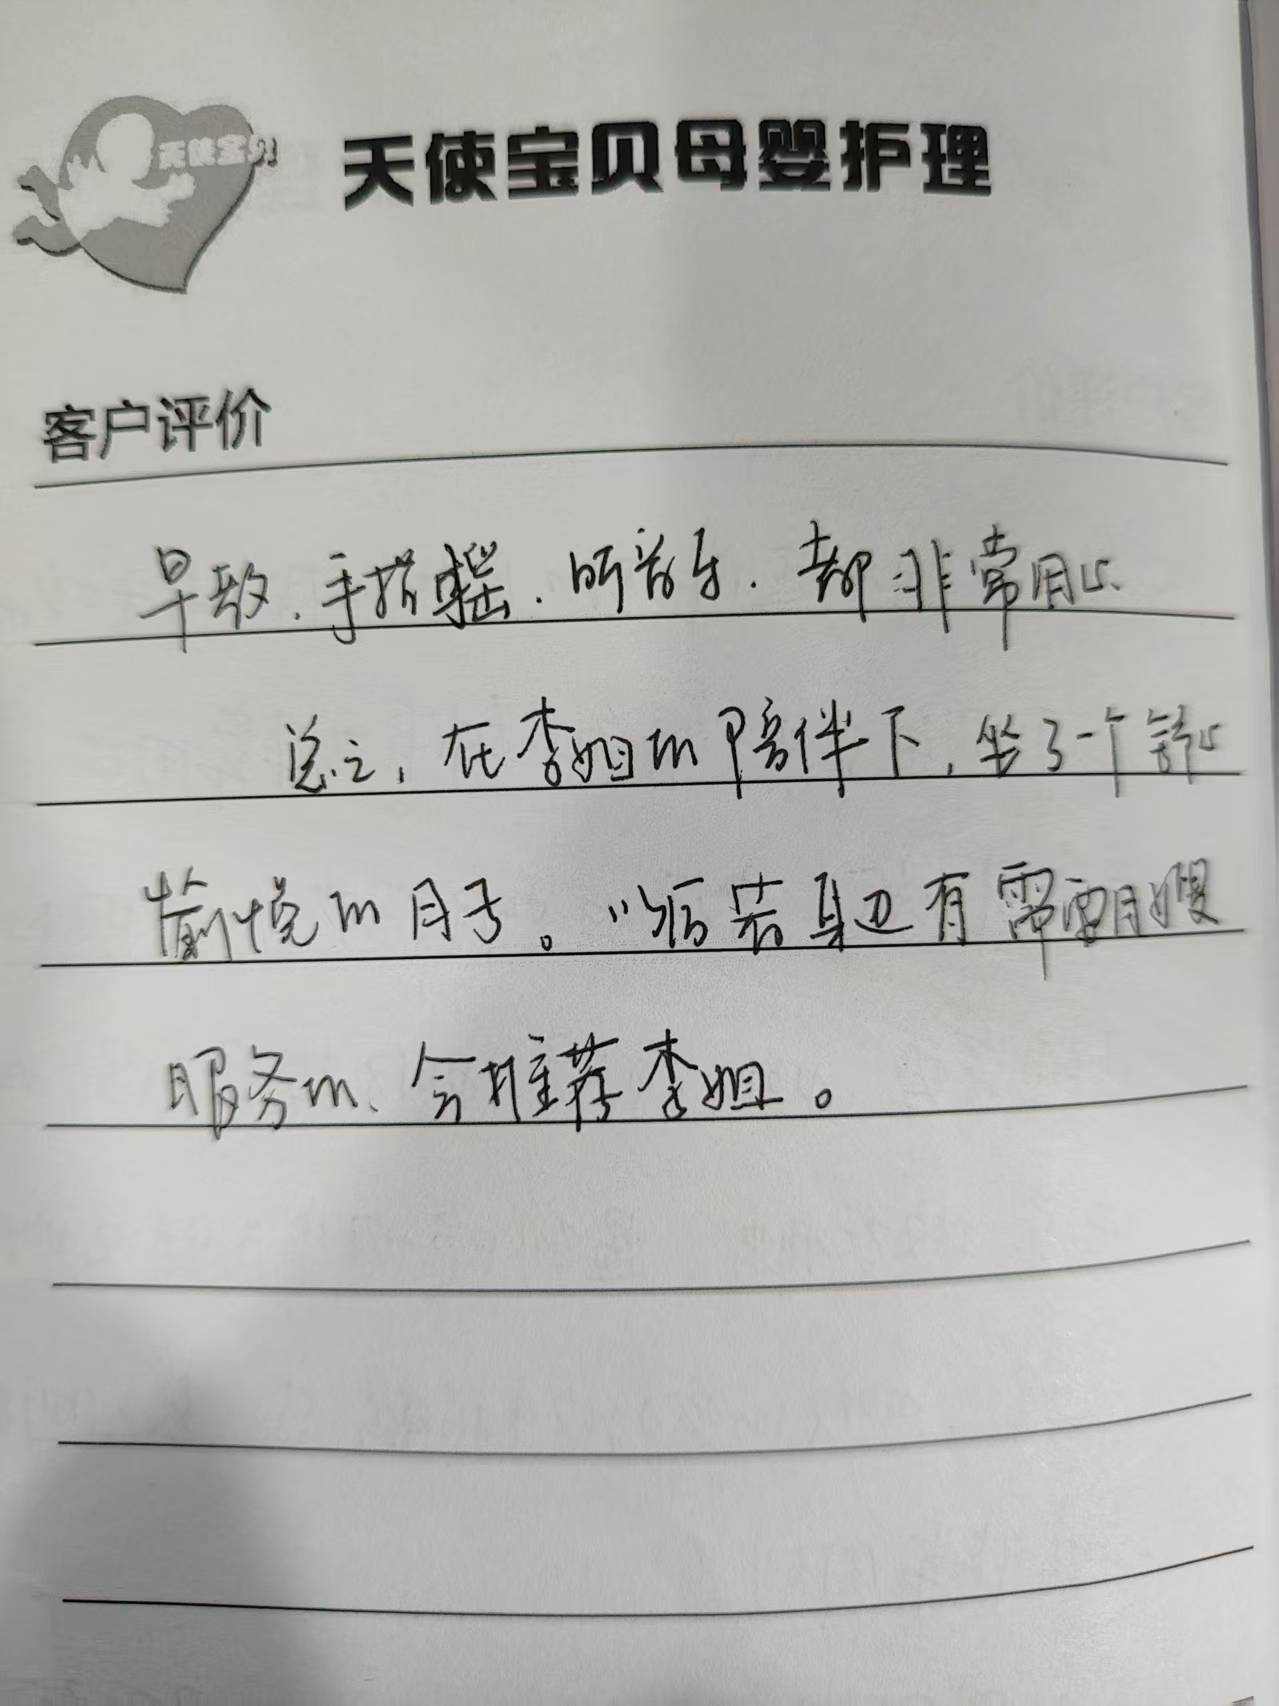 天使宝贝
天使宝贝母婴护理
客户评价
早教、手指摇、听音乐、都非常用心.
总之，在李姐的陪伴下，坐了一个舒心
愉悦的月子。以后若身边有需要月嫂
服务的、会推荐李姐。